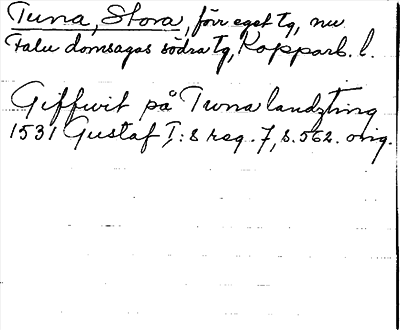 Tuna, Stora, förr eget tg, nu
Falu domsagas södra tg, Kopparb. l.
Giffwit på Twna landzting
1531 Gustaf I:s reg. 7, s. 562. orig.